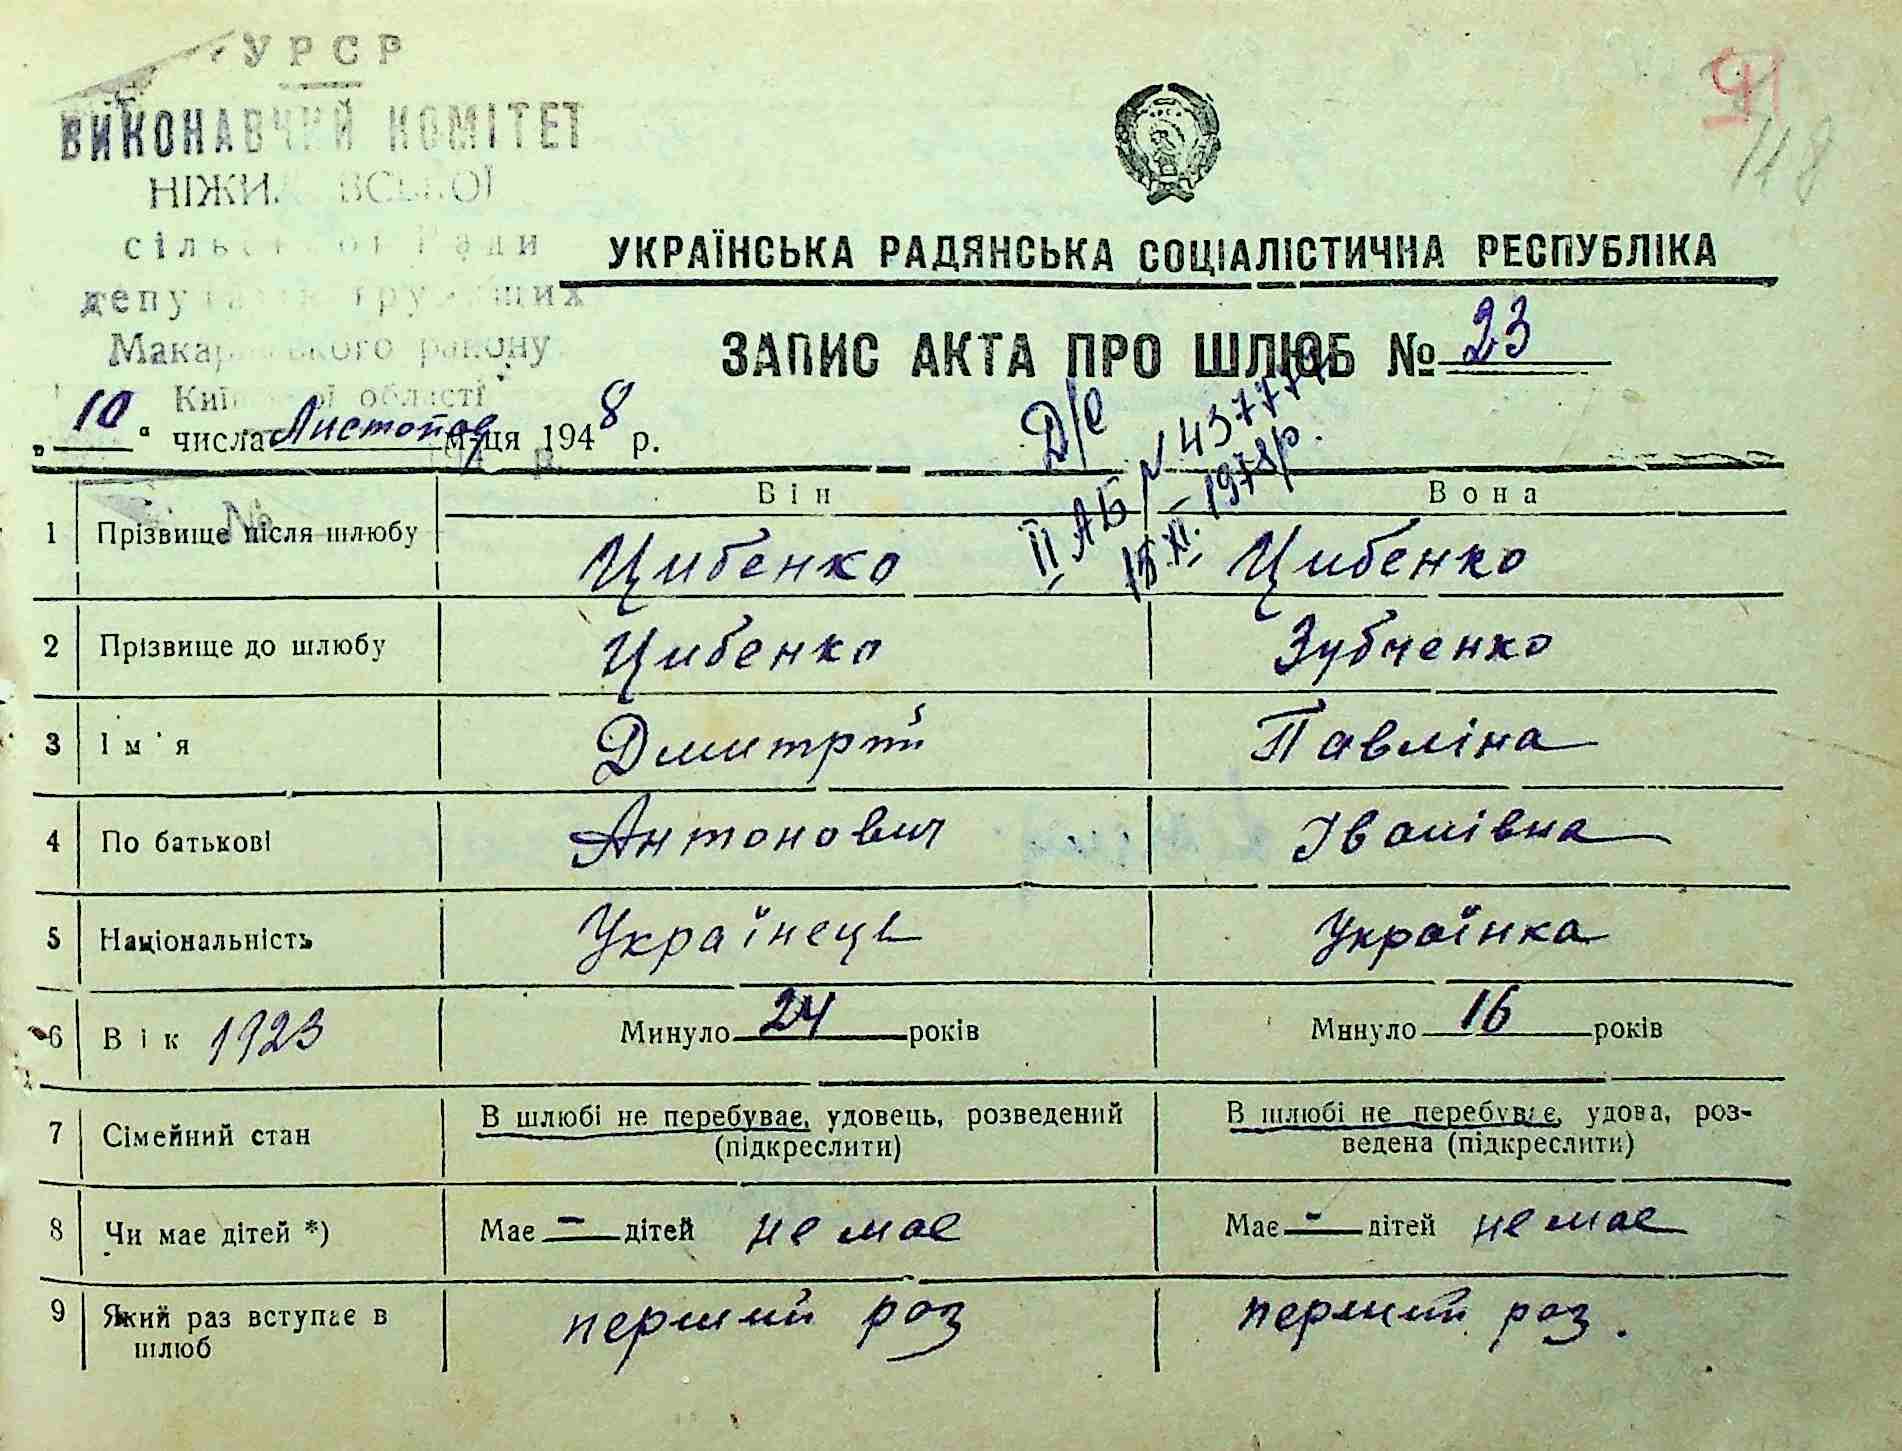 УРСР
ВИКОНАВЧИЙ КОМІТЕТ
сільської Ради
депутатів трудящих
Макарівського району
Київської області
91
118
УКРАЇНСЬКА РАДЯНСЬКА СОЦІАЛІСТИЧНА РЕСПУБЛІКА
ЗАПИС АКТА ПРО ШЛЮБ № 23
„10“ числа Листопад м-ця 1948 р.
Д/с
II АБ №
XI. 1978р.
№
Він Вона
1 Прізвище після шлюбу Цибенко Цибенко
2 Прізвище до шлюбу Цибенко Зубченко
3 Ім'я Дмитрій Павліна
4 По батькові Антонович Іванівна
5 Національність Українець Українка
6 Вік 1923 Минуло 24 років Минуло 16 років
7 Сімейний стан В шлюбі не перебуває, удовець, розведений (підкреслити) В шлюбі не перебуває, удова, роз-
ведена (підкреслити)
8 Чи має дітей *) Має — дітей не має Має — дітей не має
9 Який раз вступає в перший раз перший раз.
шлюб